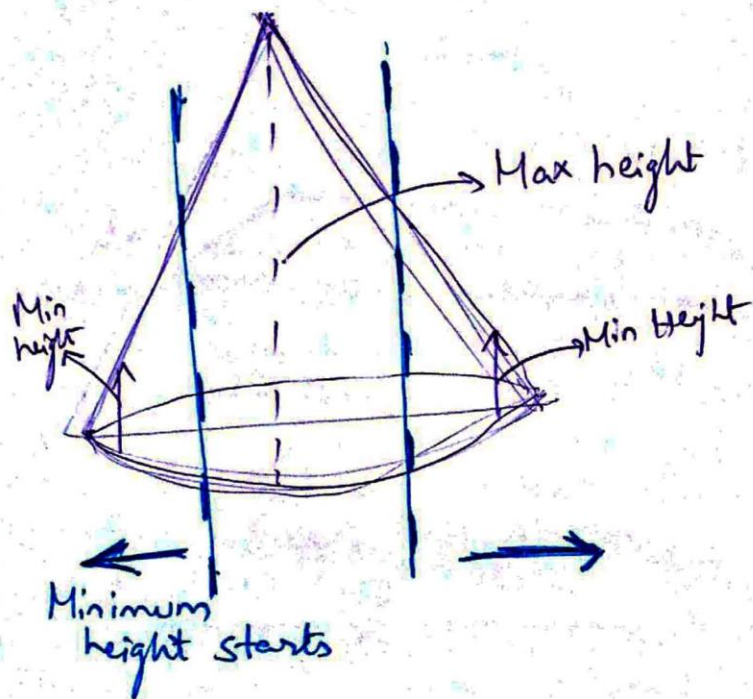 Max height
Min
height
Min Height
Minimum
height starts